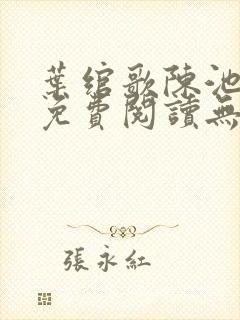 葉綰歌陳池
免費閱讀無
張永紅